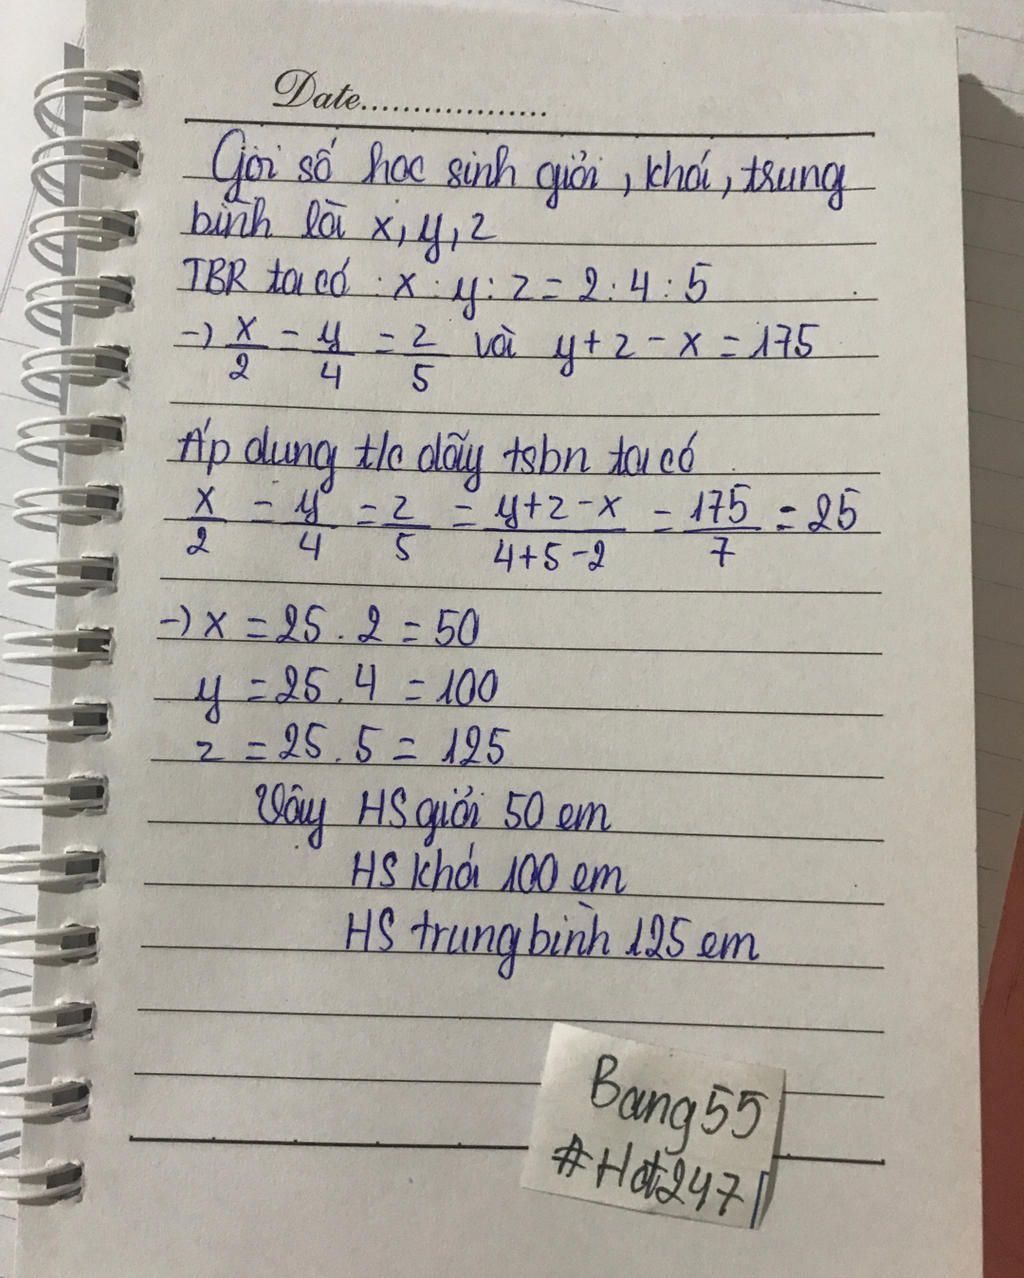 Date..................
Gọi số học sinh giỏi, khá, trung
bình là x, y, z
TBR ta có : x : y : z = 2 : 4 : 5
→ x/2 = y/4 = z/5 và y + z - x = 175
Áp dụng t/c dãy tsbn ta có
x/2 = y/4 = z/5 = y+z-x/4+5-2 = 175/7 = 25
→ x = 25 . 2 = 50
y = 25 . 4 = 100
z = 25 . 5 = 125
Vậy HS giỏi 50 em
HS khá 100 em
HS trung bình 125 em
Bang55
#Hot247